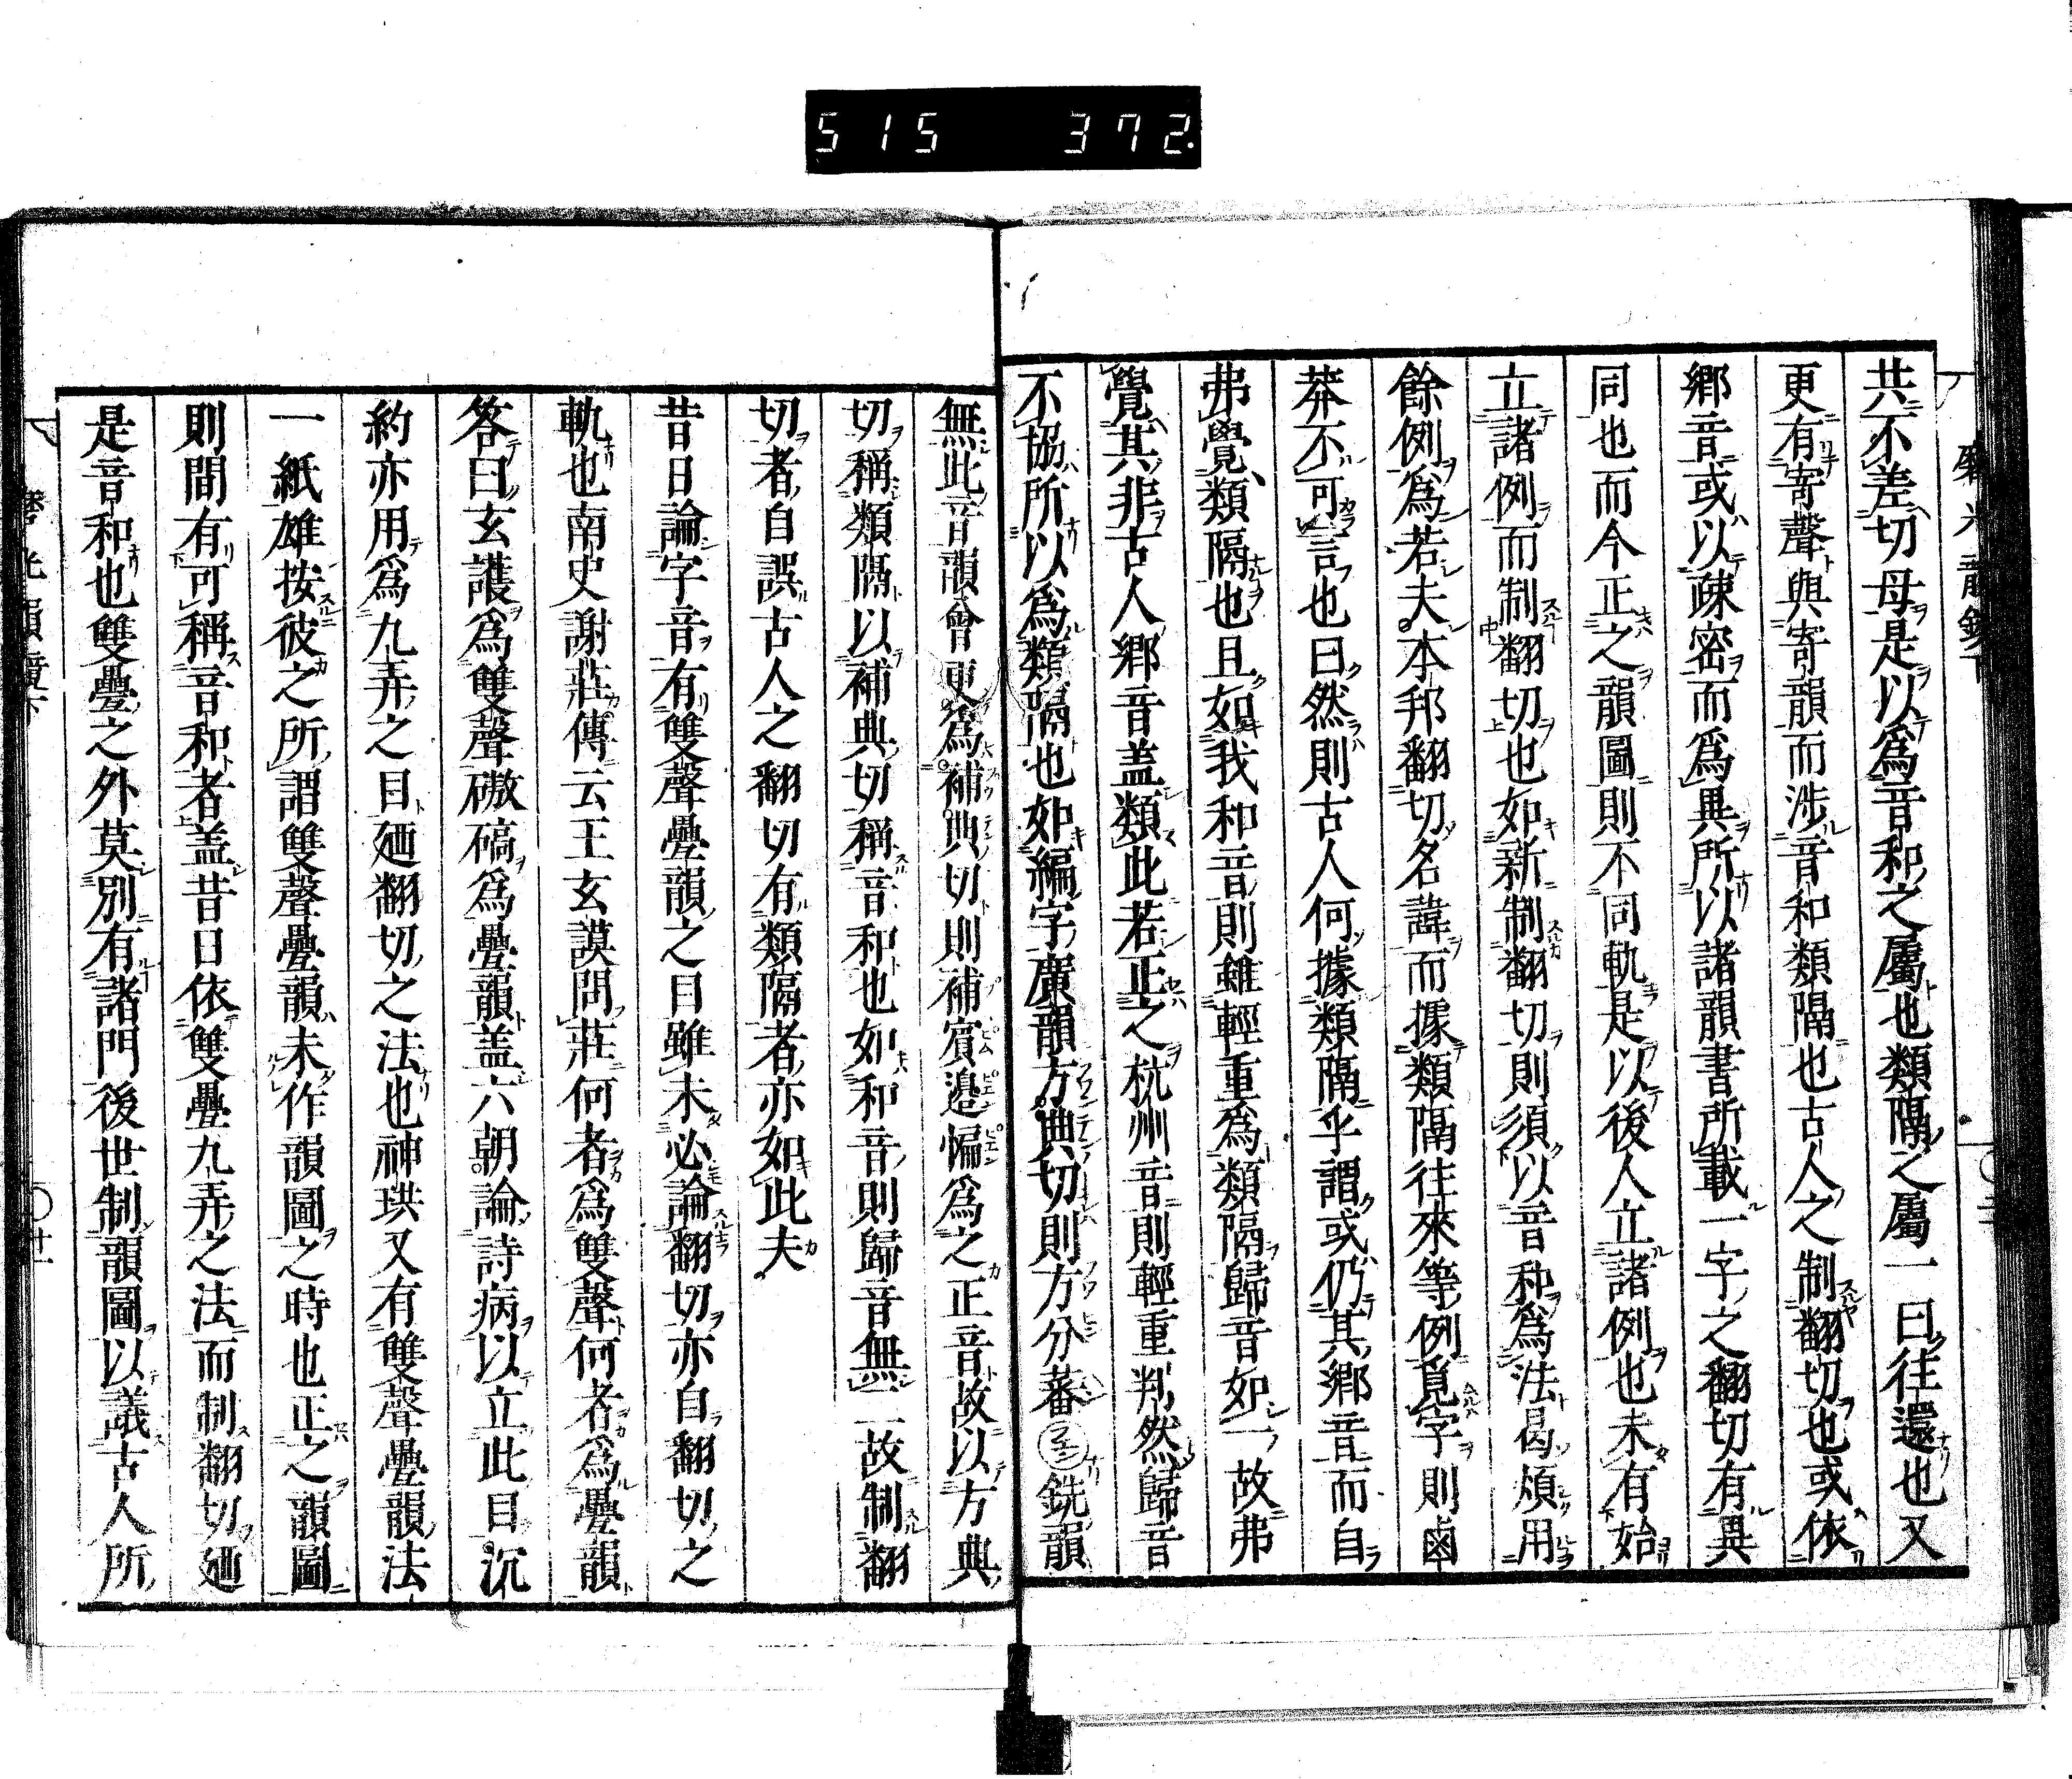 515 372.
共不差切母是以爲音和之屬也類隔之屬一曰往還也又
更有寄聲與寄韻而涉音和類隔也古人之制翻切也或依
鄉音或以疎密而爲異所以諸韻書所載一字之翻切有異
同也而今正之韻圖則不同軌是以後人立諸例也未有始
立諸例而制翻切也如新制翻切則須以音和爲法曷煩用
餘例爲若夫本邦翻切名諱而據類隔往來等例覓字則鹵
莽不可言也曰然則古人何據類隔乎謂或仍其鄉音而自
弗覺類隔也且如我和音則雖輕重爲類隔歸音如一故弗
覺其非古人鄉音盖類此若正之杭州音則輕重判然歸音
不協所以爲類隔也如編字廣韻方典切則方分蕃銑韻
無此音韻會更爲補典切則補賓邊惼爲之正音故以方典
切稱類隔以補典切稱音和也如和音則歸音無二故制翻
切者自誤古人之翻切有類隔者亦如此夫
昔日論字音有雙聲疊韻之目雖未必論翻切亦自翻切之
軌也南史謝莊傳云王玄謨問莊何者爲雙聲何者爲疊韻
答曰玄護爲雙聲磝碻爲疊韻盖六朝論詩病以立此目沉
約亦用爲九弄之目廼翻切之法也神珙又有雙聲疊韻法
一紙雄按彼之所謂雙聲疊韻未作韻圖之時也正之韻圖
則間有可稱音和者盖昔日依雙疊九弄之法而制翻切廼
是音和也雙疊之外莫別有諸門後世制韻圖以議古人所